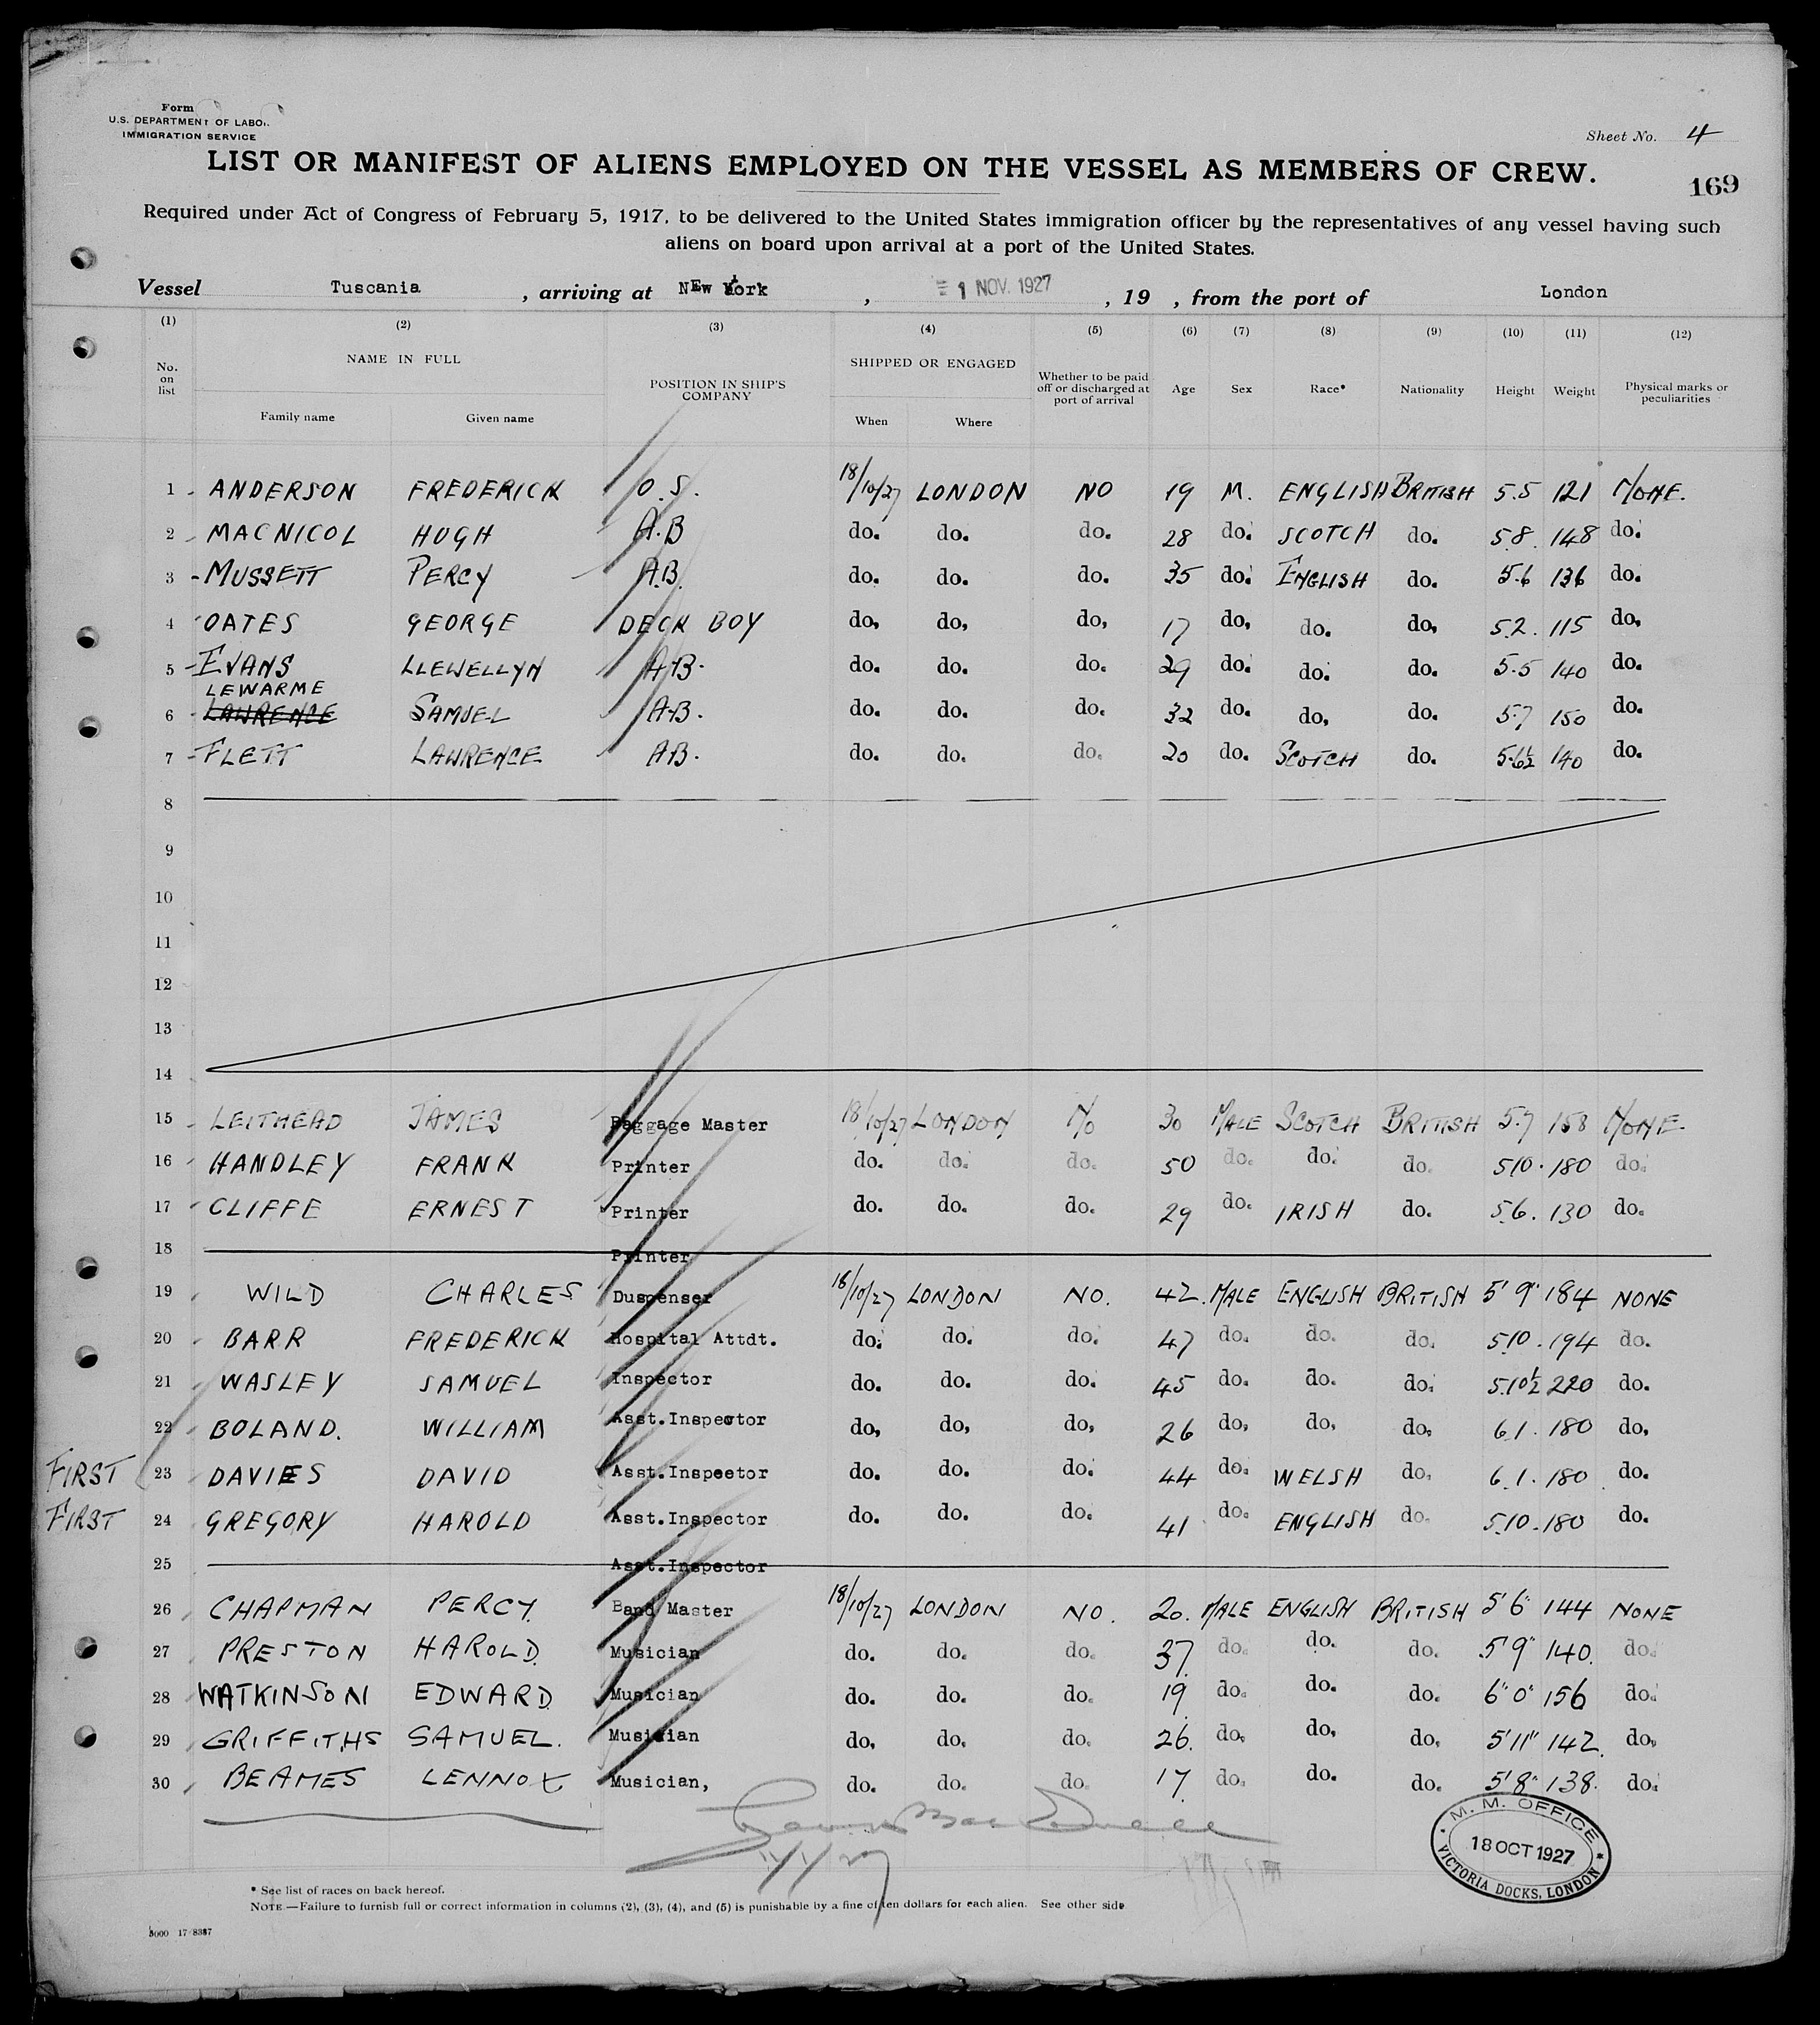 Form
U.S. DEPARTMENT OF LABO
IMMIGRATION SERVICE
Sheet No. 4
LIST OR MANIFEST OF ALIENS EMPLOYED ON THE VESSEL AS MEMBERS OF CREW.
169
Required under Act of Congress of February 5, 1917, to be delivered to the United States immigration officer by the representatives of any vessel having such
aliens on board upon arrival at a port of the United States.
Vessel Tuscania, arriving at NEw York, 1 NOV. 1927, 19 , from the port of London
(1) (2) (3) (4) (5) (6) (7) (8) (9) (10) (11) (12)
No. on list NAME IN FULL POSITION IN SHIP'S COMPANY SHIPPED OR ENGAGED Whether to be paid off or discharged at port of arrival Age Sex Race* Nationality Height Weight Physical marks or peculiarities
Family name Given name When Where
1 ANDERSON FREDERICK O.S. 18/10/27 LONDON NO 19 M. ENGLISH BRITISH 5.5 121 NONE.
2 MACNICOL HUGH A.B do. do. do. 28 do. SCOTCH do. 5.8. 148 do.
3 MUSSETT PERCY A.B. do. do. do. 35 do. ENGLISH do. 5.6 136 do.
4 OATES GEORGE DECK BOY do, do, do, 17 do, do. do, 5.2. 115 do,
5 EVANS LLEWELLYN A.B. do. do. do. 29 do. do. do. 5.5 140 do.
LEWARME
6 LAWRENCE SAMUEL A.B. do. do. do. 32 do. do, do. 5.7 150 do.
7 FLETT LAWRENCE A.B. do. do. do. 20 do. SCOTCH do. 5.6½ 140 do.
8
9
10
11
12
13
14
15 LEITHEAD JAMES Baggage Master 18/10/27 LONDON NO 30 MALE SCOTCH BRITISH 5.7 158 NONE.
16 HANDLEY FRANK Printer do. do. do. 50 do. do. do. 5.10. 180 do.
17 CLIFFE ERNEST Printer do. do. do. 29 do. IRISH do. 5.6. 130 do.
18 Printer
19 WILD CHARLES Duspenser 18/10/27 LONDON NO. 42. MALE ENGLISH BRITISH 5' 9" 184 NONE
20 BARR FREDERICK Hospital Attdt. do. do. do. 47 do. do. do. 5.10. 194 do.
21 WASLEY SAMUEL Inspector do. do. do. 45 do. do. do. 5.10½ 220 do.
22 BOLAND. WILLIAM Asst.Inspector do, do, do, 26 do, do, do, 6.1. 180 do,
FIRST 23 DAVIES DAVID Asst.Inspector do. do. do. 44 do. WELSH do. 6.1. 180 do.
FIRST 24 GREGORY HAROLD Asst.Inspector do. do. do. 41 do. ENGLISH do. 5.10. 180 do.
25 Asst.Inspector
26 CHAPMAN PERCY. Band Master 18/10/27 LONDON NO. 20. MALE ENGLISH BRITISH 5' 6" 144 NONE
27 PRESTON HAROLD. Musician do. do. do. 37. do. do. do. 5' 9" 140. do.
28 WATKINSON EDWARD. Musician do. do. do. 19. do. do. do. 6' 0" 156 do.
29 GRIFFITHS SAMUEL. Musician do, do. do. 26. do, do, do, 5' 11" 142. do,
30 BEAMES LENNOX Musician, do. do. do. 17. do. do. do. 5' 8" 138. do.
11/1/27
M. M. OFFICE
18 OCT 1927
VICTORIA DOCKS, LONDON
* See list of races on back hereof.
NOTE.—Failure to furnish full or correct information in columns (2), (3), (4), and (5) is punishable by a fine of ten dollars for each alien. See other side